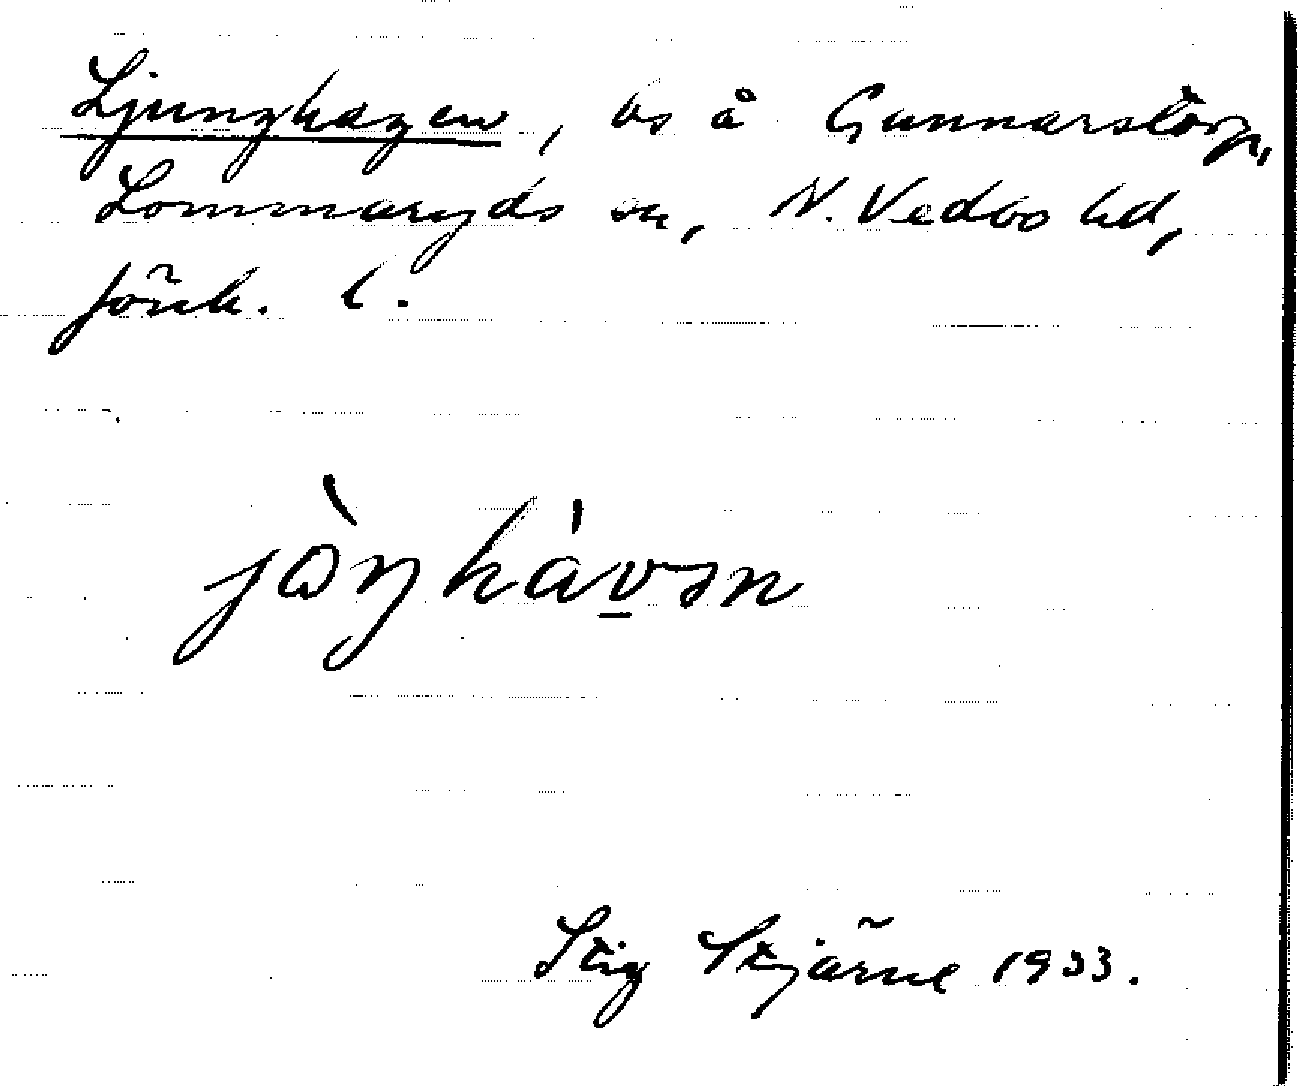 Ljunghagen, bs å Gunnarstorp,
Lommaryds sn, N. Vedbo hd,
Jönk. l.
jòŋhàv̠ən
Stig Stjärne 1933.